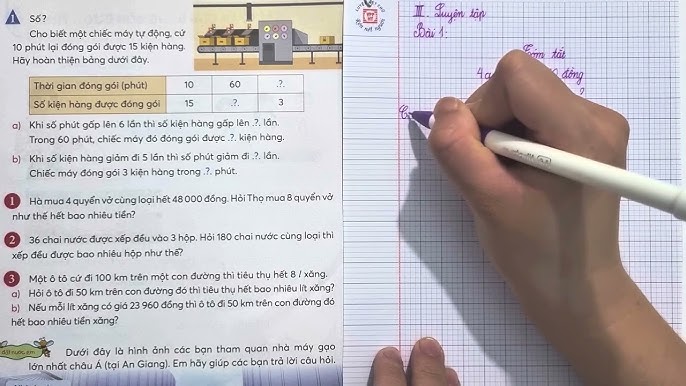 Số?
Cho biết một chiếc máy tự động, cứ
10 phút lại đóng gói được 15 kiện hàng.
Hãy hoàn thiện bảng dưới đây.
Thời gian đóng gói (phút) 10 60 .?.
Số kiện hàng được đóng gói 15 .?. 3
a) Khi số phút gấp lên 6 lần thì số kiện hàng gấp lên .?. lần.
Trong 60 phút, chiếc máy đó đóng gói được .?. kiện hàng.
b) Khi số kiện hàng giảm đi 5 lần thì số phút giảm đi .?. lần.
Chiếc máy đóng gói 3 kiện hàng trong .?. phút.
1 Hà mua 4 quyển vở cùng loại hết 48 000 đồng. Hỏi Thọ mua 8 quyển vở
như thế hết bao nhiêu tiền?
2 36 chai nước được xếp đều vào 3 hộp. Hỏi 180 chai nước cùng loại thì
xếp đều được bao nhiêu hộp như thế?
3 Một ô tô cứ đi 100 km trên một con đường thì tiêu thụ hết 8 l xăng.
a) Hỏi ô tô đi 50 km trên con đường đó thì tiêu thụ hết bao nhiêu lít xăng?
b) Nếu mỗi lít xăng có giá 23 960 đồng thì ô tô đi 50 km trên con đường đó
hết bao nhiêu tiền xăng?
Đất nước em
Dưới đây là hình ảnh các bạn tham quan nhà máy gạo
lớn nhất châu Á (tại An Giang). Em hãy giúp các bạn trả lời câu hỏi.
III. Luyện tập
Bài 1:
Tóm tắt
4 q
0 đồng
?